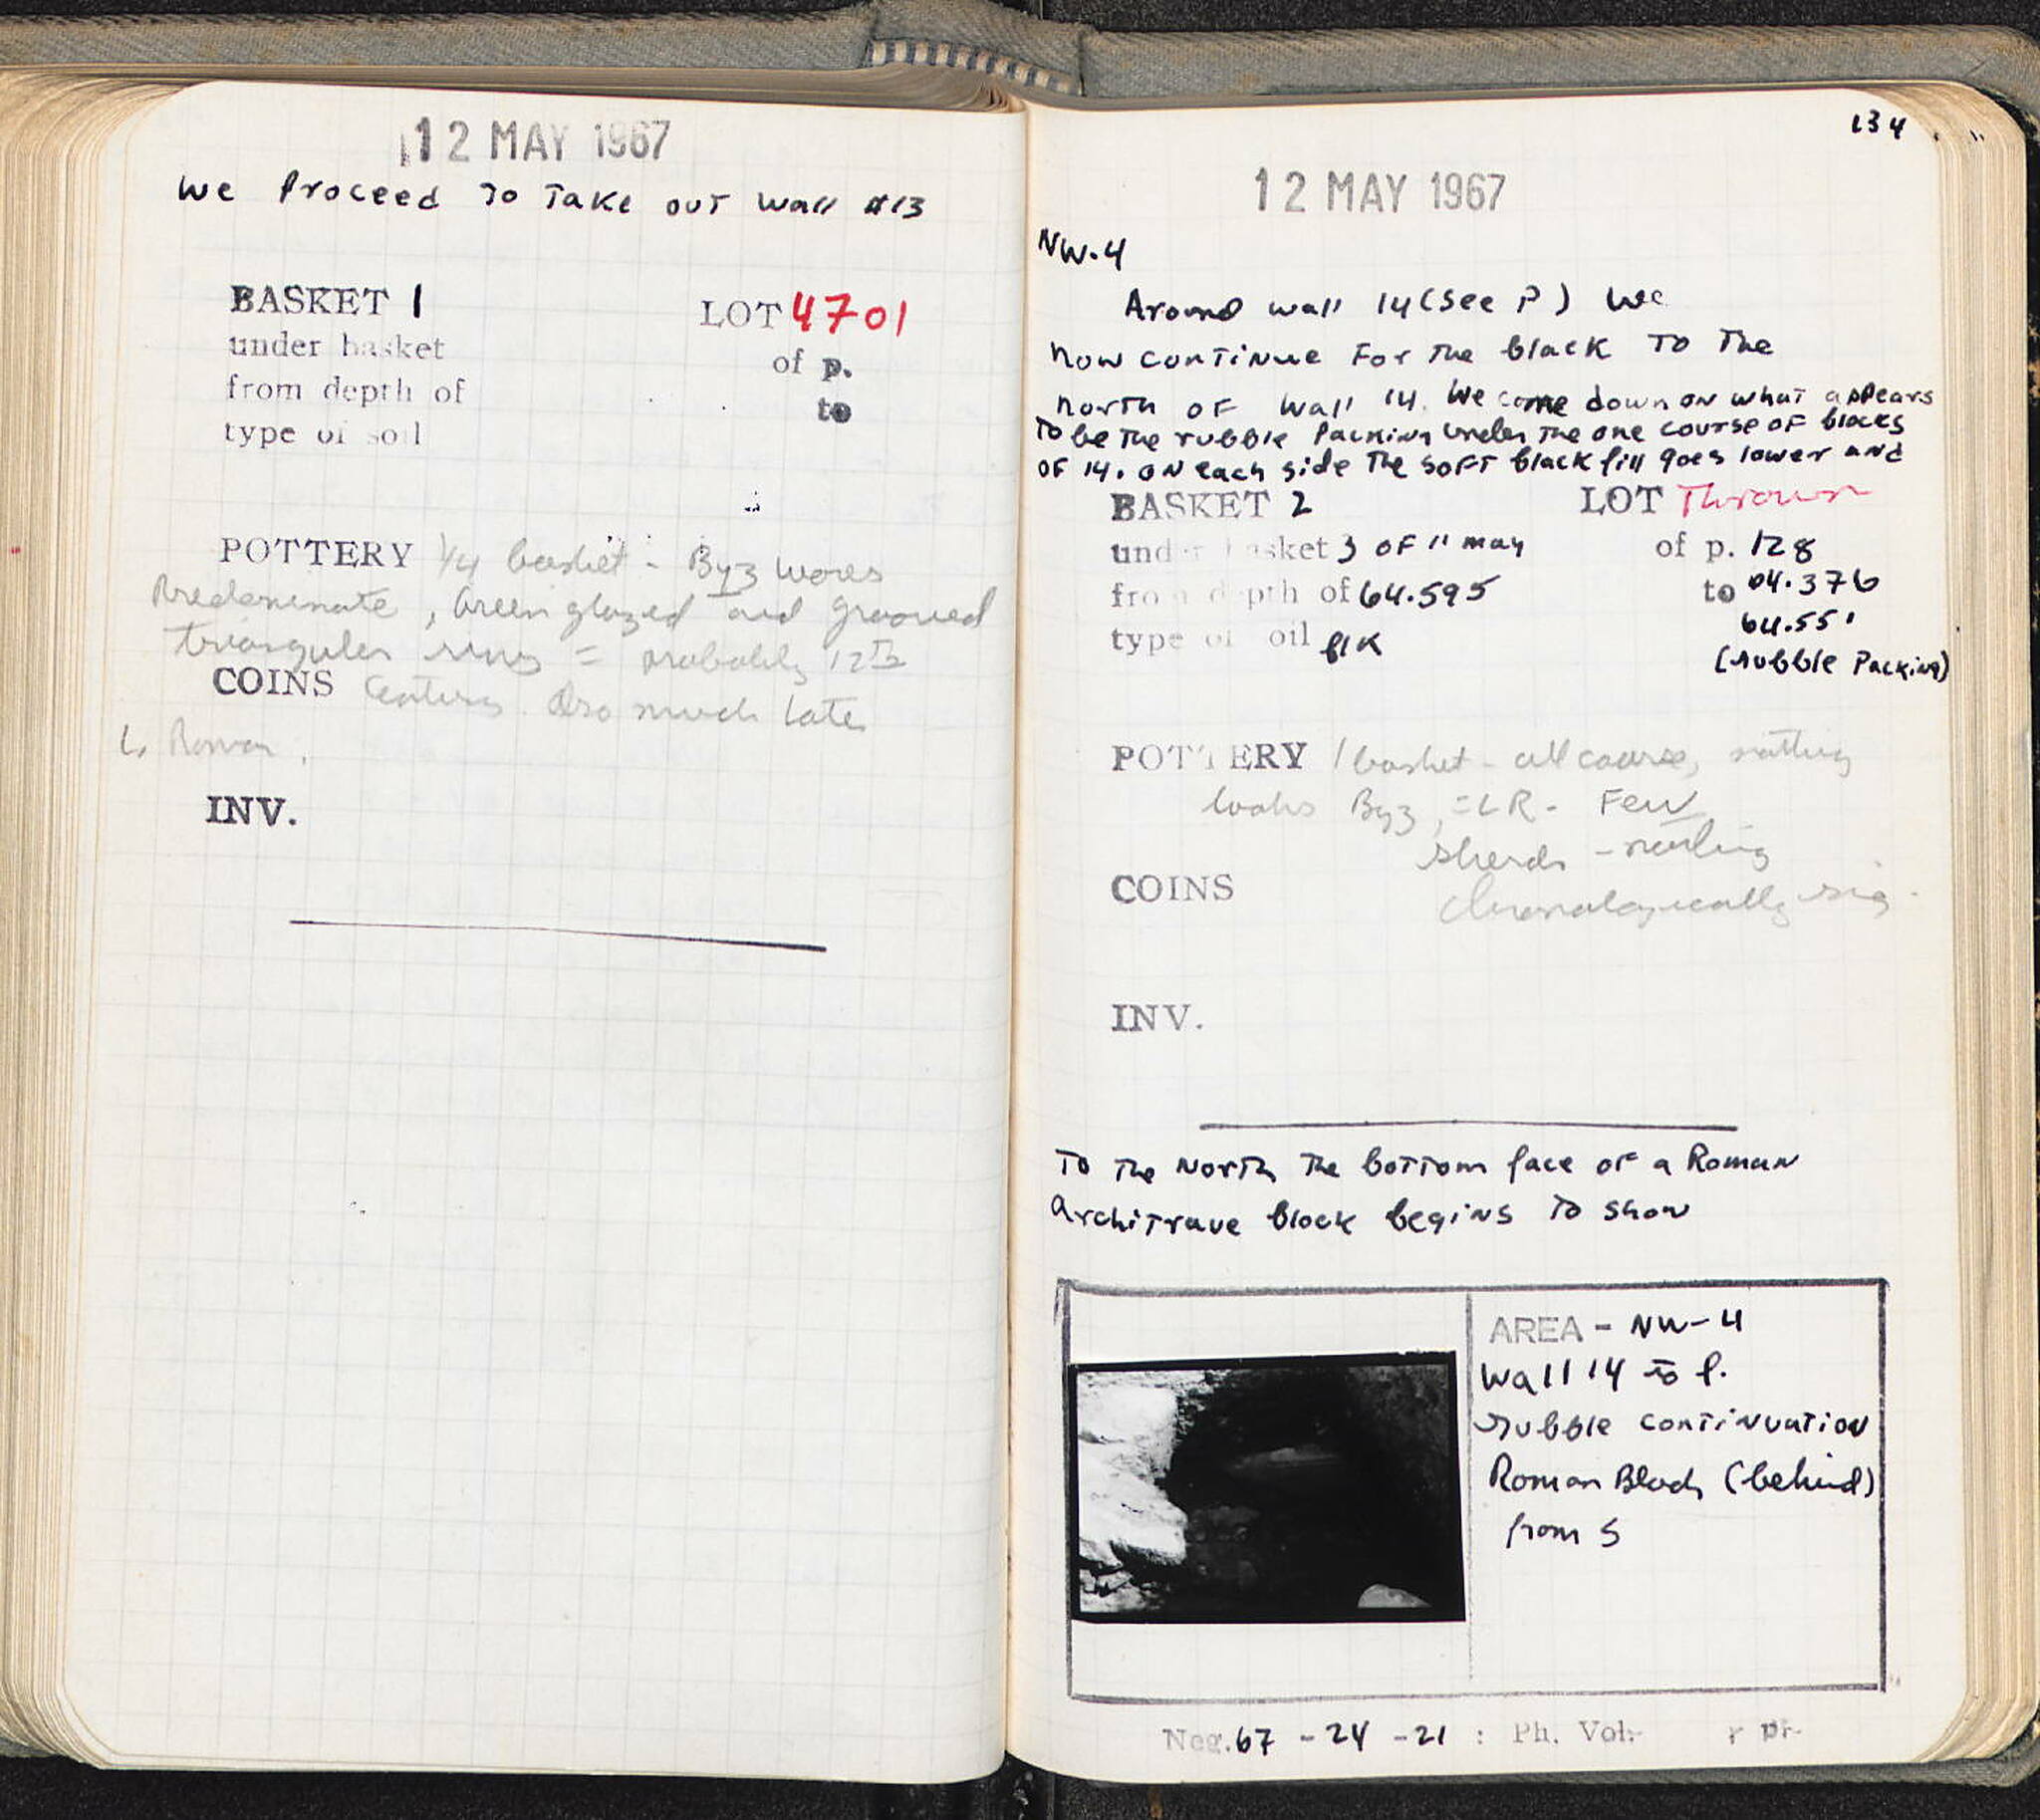 12 MAY 1967
we Proceed to Take out wall #13
BASKET 1 LOT 4701
under basket of p.
from depth of to
type of soil
POTTERY 1/4 basket - Byz wares
Predominate, Green glazed and grooved
triangular rims = probably 12th
COINS century. Also much late
Roman.
INV.
134
12 MAY 1967
NW.4
Around wall 14 (See P ) We
now continue For The black To The
north of wall 14. We come down on what appears
To be The rubble Packing under The one course of blocks
of 14. on each side The soft black fill goes lower and
BASKET 2 LOT Thrown
under basket 3 of 11 may of p. 128
from depth of 64.595 to 64.376
64.551
type of soil blk
(rubble Packing)
POTTERY 1 basket - all coarse, nothing
looks Byz, = LR - Few
sherds - nothing
COINS chronologically sig.
INV.
To The North The bottom face of a Roman
Architrave block begins To show
AREA - NW-4
Wall 14 to
rubble continuation
Roman Block (behind)
from S
Neg. 67 - 24 - 21 : Ph. Vol: